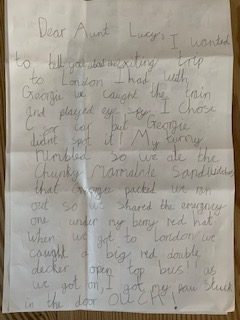 Dear Aunt Lucy, I wanted
to tell you about exciting trip
to London I had with
Georgie we caught the train
and played eye spy I chose
C for car but Georgie
didnt spot it! My tummy
rumbled so we ate the
chunky Marmalade Sandwiches
that Georgie packed we ran
out so we shared the emergency
one under my berry red hat
When we got to London we
caught a big red double
decker open top bus as
we got on, I got my paw stuck
in the door OUCH!